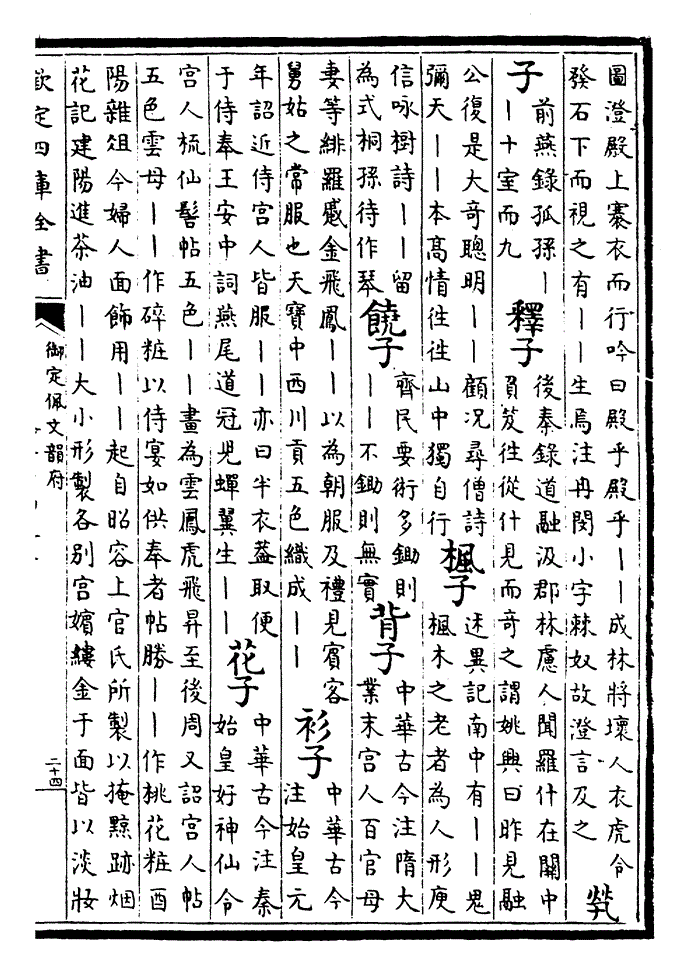 圖澄殿上褰衣而行吟曰殿乎殿乎——成林將壞人衣虎令
發石下而視之有——生焉注冉閔小字棘奴故澄言及之
煢
子
前燕錄孤孫—
—十室而九
釋子
後秦錄道融汲郡林慮人聞羅什在關中
負笈往從什見而奇之謂姚興曰昨見融
公復是大奇聰明——顧況尋僧詩
彌天——本高情往往山中獨自行
楓子
述異記南中有——鬼
楓木之老者為人形庾
信咏樹詩——留
為式桐孫待作琴
饒子
齊民要術多鋤則
——不鋤則無實
背子
中華古今注隋大
業末宫人百官母
妻等緋羅蹙金飛鳳——以為朝服及禮見賓客
舅姑之常服也天寶中西川貢五色織成——
衫子
中華古今
注始皇元
年詔近侍宫人皆服——亦曰半衣蓋取便
于侍奉王安中詞燕尾道冠兒蟬翼生——
花子
中華古今注秦
始皇好神仙令
宫人梳仙髻帖五色——畫為雲鳳虎飛昇至後周又詔宫人帖
五色雲母——作碎粧以侍宴如供奉者帖勝——作桃花粧酉
陽雜俎今婦人面飾用——起自昭容上官氏所製以掩黥跡烟
花記建陽進茶油——大小形製各别宫嬪縷金于面皆以淡妝
欽定四庫全書
御定佩文韻府
二十四